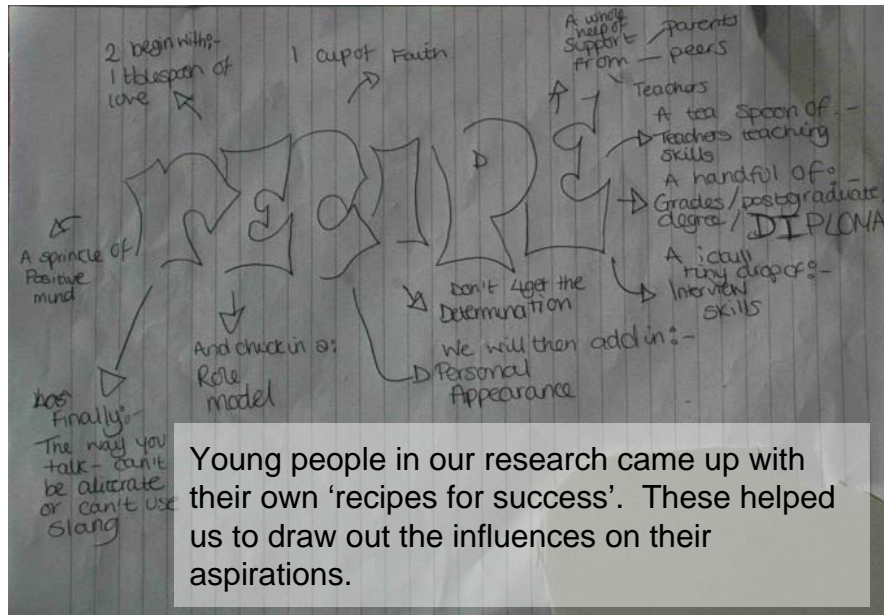 2 begin with:-
1 tblespoon of
love
1 cup of Faith
A whole
heep of
support
from
parents
peers
Teachers
A tea spoon of :-
Teachers teaching
skills
A handful of :-
Grades/postgraduate
degree/DIPLOMA
A
tiny drop of :-
Interview
skills
RECIPE
A sprincle of
Positive
mind
Don't 4get the
Determination
And chuck in a:
Role
model
We will then add in :-
Personal
Appearance
Finally:-
The way you
talk - can't
be aliterate
or can't use
Slang
Young people in our research came up with
their own ‘recipes for success’. These helped
us to draw out the influences on their
aspirations.